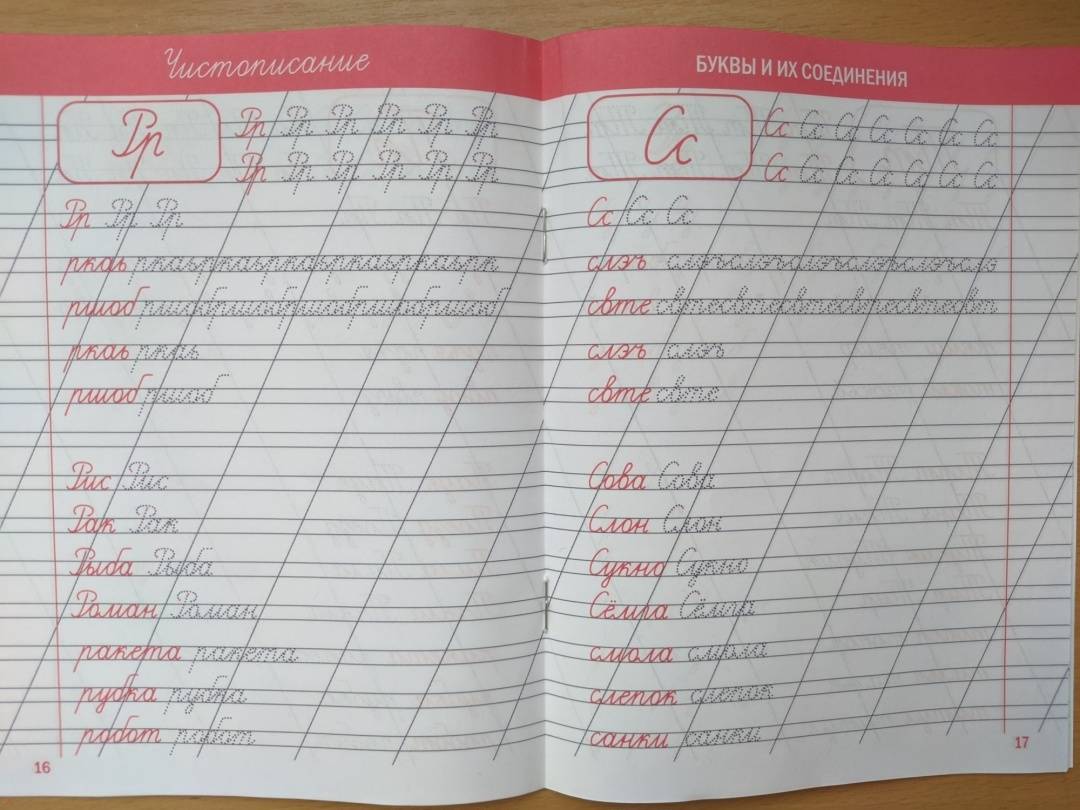 Чистописание
Рр Рр Рр Рр Рр Рр Рр
Рр Рр Рр Рр Рр Рр
Рр Рр Рр
ркаь ркаьркаьркаьркаьркаьрк
ршоб ршобршобршобршобршоб
ркаь ркаь
ршоб ршоб
Рис Рис
Рак Рак
Рыба Рыба
Роман Роман
ракета ракета
рубка рубка
робот робот
16
БУКВЫ И ИХ СОЕДИНЕНИЯ
Сс Сс Сс Сс Сс Сс Сс Сс
Сс Сс Сс Сс Сс Сс Сс
Сс Сс Сс
слэъ слэъслэъслэъслэъслэъслэ
свте свтесвтесвтесвтесвтесвт
слэъ слэъ
свте свте
Сова Сова
Слон Слон
Сукно Сукно
Сёмга Сёмга
смола смола
слепок слепок
санки санки
17